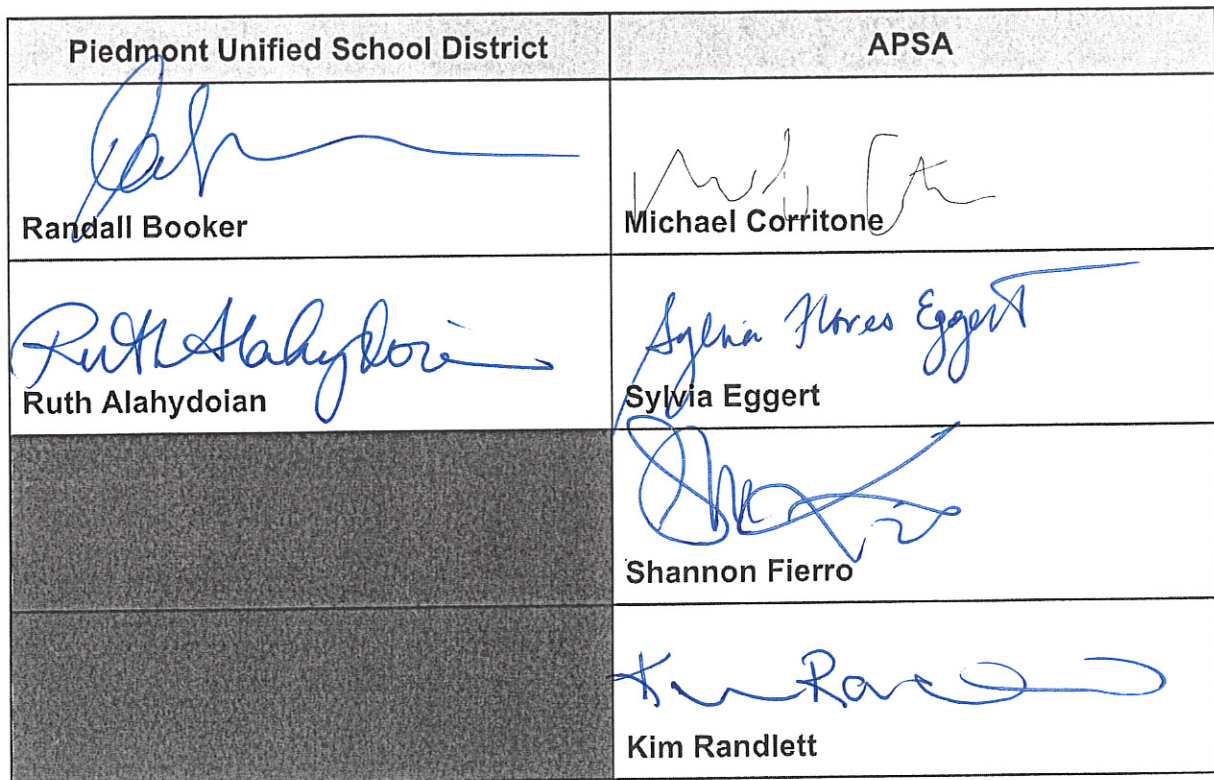 Piedmont Unified School District
APSA
Randall Booker
Michael Corritone
Ruth Alahydoian
Ruth Alahydoian
Sylvia Flores Eggert
Sylvia Eggert
Shannon Fierro
Kim Randlett